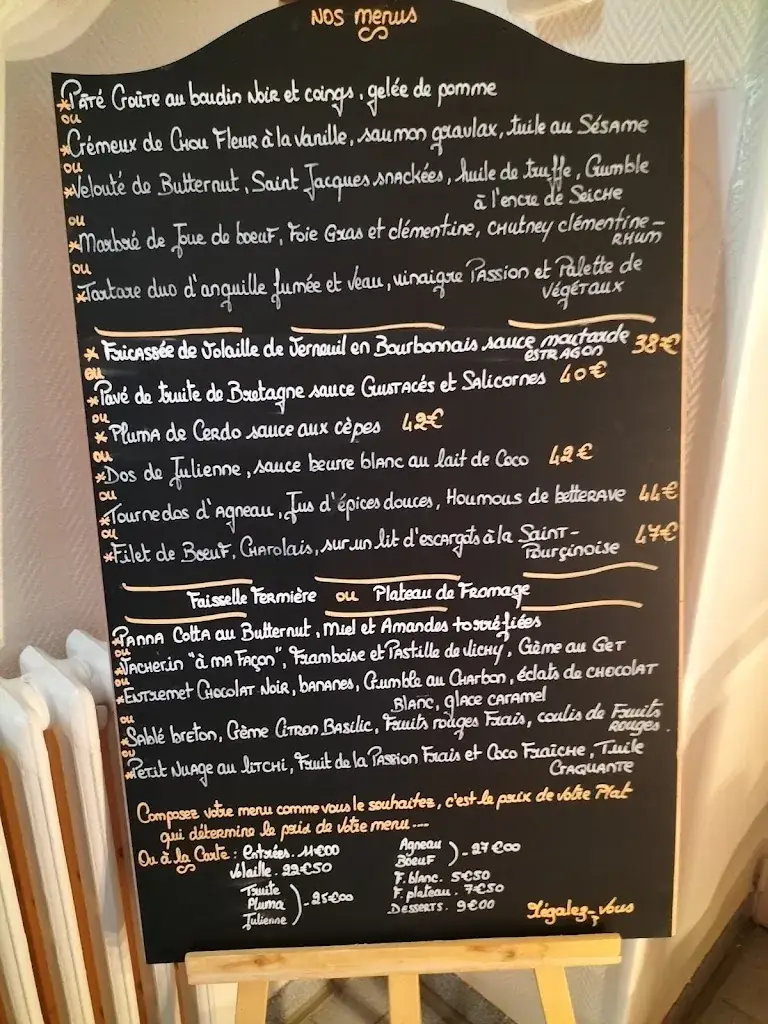 NOS menus
*Pâté Croûte au boudin Noir et coings, gelée de pomme
ou
*Crémeux de Chou Fleur à la Vanille, saumon gravlax, tuile au Sésame
ou
*Velouté de Butternut, Saint Jacques snackées, huile de truffe, Crumble
à l'encre de Seiche
ou
*Marbré de Joue de boeuf, Foie Gras et clémentine, chutney clémentine-
Rhum
ou
*Tartare duo d'anguille fumée et veau, vinaigre Passion et Palette de
Végétaux
* Fricassée de Volaille de Jerneuil en Bourbonnais sauce moutarde 38€
ESTRAGON
ou
*Pavé de truite de Bretagne sauce Crustacés et Salicornes 40€
ou
* Pluma de Cerdo sauce aux cèpes 42€
ou
*Dos de Julienne, sauce beurre blanc au lait de Coco 42€
ou
*Tournedos d'Agneau, Jus d'épices douces, Houmous de betterave 44€
ou
*Filet de Boeuf, Charolais, sur un lit d'escargots à la Saint- 47€
Pourçinoise
Faisselle Fermière ou Plateau de Fromage
*Panna Cotta au Butternut, Miel et Amandes torréfiées
ou
*Vacherin "à ma Façon", Framboise et Pastille de Vichy, Crème au Get
ou
*Entremet Chocolat Noir, bananes, Crumble au Charbon, éclats de chocolat
Blanc, glace caramel
ou
*Sablé breton, Crème Citron Basilic, Fruits rouges Frais, coulis de Fruits
Rouges.
ou
*Petit Nuage au litchi, Fruit de la Passion Frais et Coco Fraîche, Tuile
Craquante
Composez votre menu comme vous le souhaitez, c'est le prix de votre Plat
qui détermine le prix de votre menu....
Ou à la Carte : Entrées. 11€00
Volaille. 22€50
Truite
Pluma
Julienne
) - 25€00
Agneau
Boeuf
) - 27€00
F. blanc. 5€50
F. plateau. 7€50
Desserts. 9€00
Régalez-vous